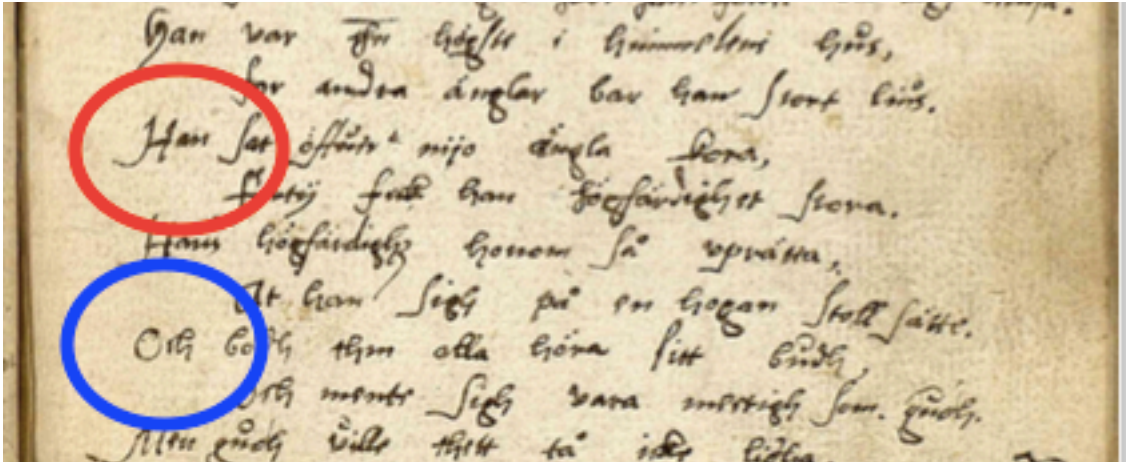 Han var then högste i himmelens hus,
för andra änglar bar han stort liüs.
Han sat öffuer nijo ängla kora,
Ty fick han högfärdighet stora.
Hans högfärdighz honom så vprätta,
At han sigh på en högan stoll sätte.
Och bödh them alla höra sitt budh,
Och mente sigh vara mectigh som gudh.
Men gudh ville thett tå icke